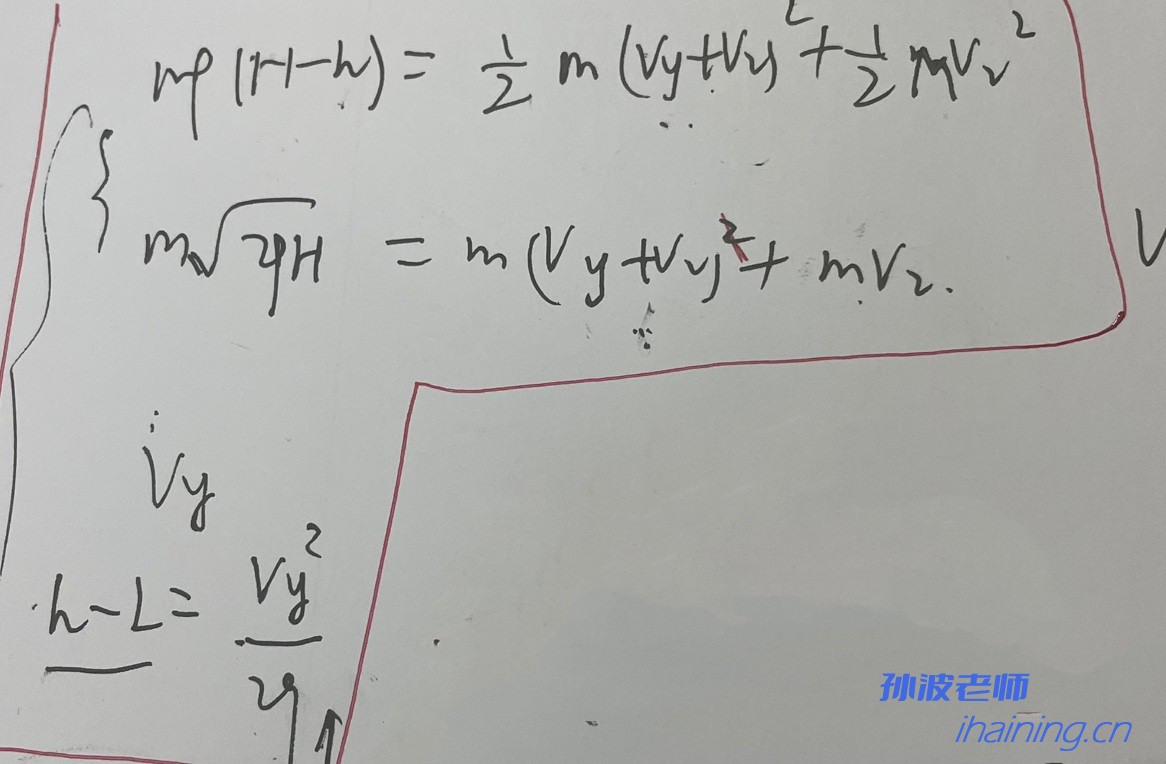 mg(H-h) = 1/2 m(Vy+V2)² + 1/2 mV2²
m√2gH = m(Vy+V2)² + mV2.
Vy
h-L = Vy²/2g
V
孙波老师
ihaining.cn